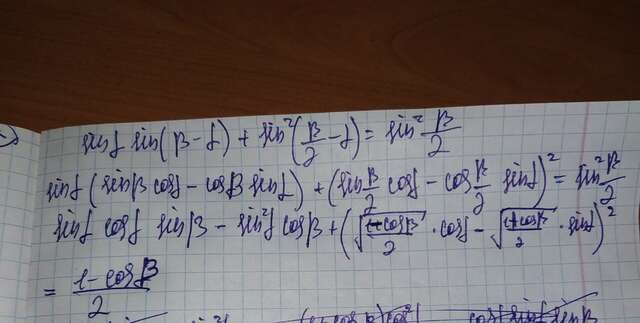 sin α sin(β - α) + sin²(β/2 - α) = sin² β/2
sin α (sin β cos α - cos β sin α) + (sin β/2 cos α - cos β/2 sin α)² = sin² β/2
sin α cos α sin β - sin² α cos β + (√((1-cos β)/2) · cos α - √((1+cos β)/2) · sin α)²
= (1 - cos β)/2